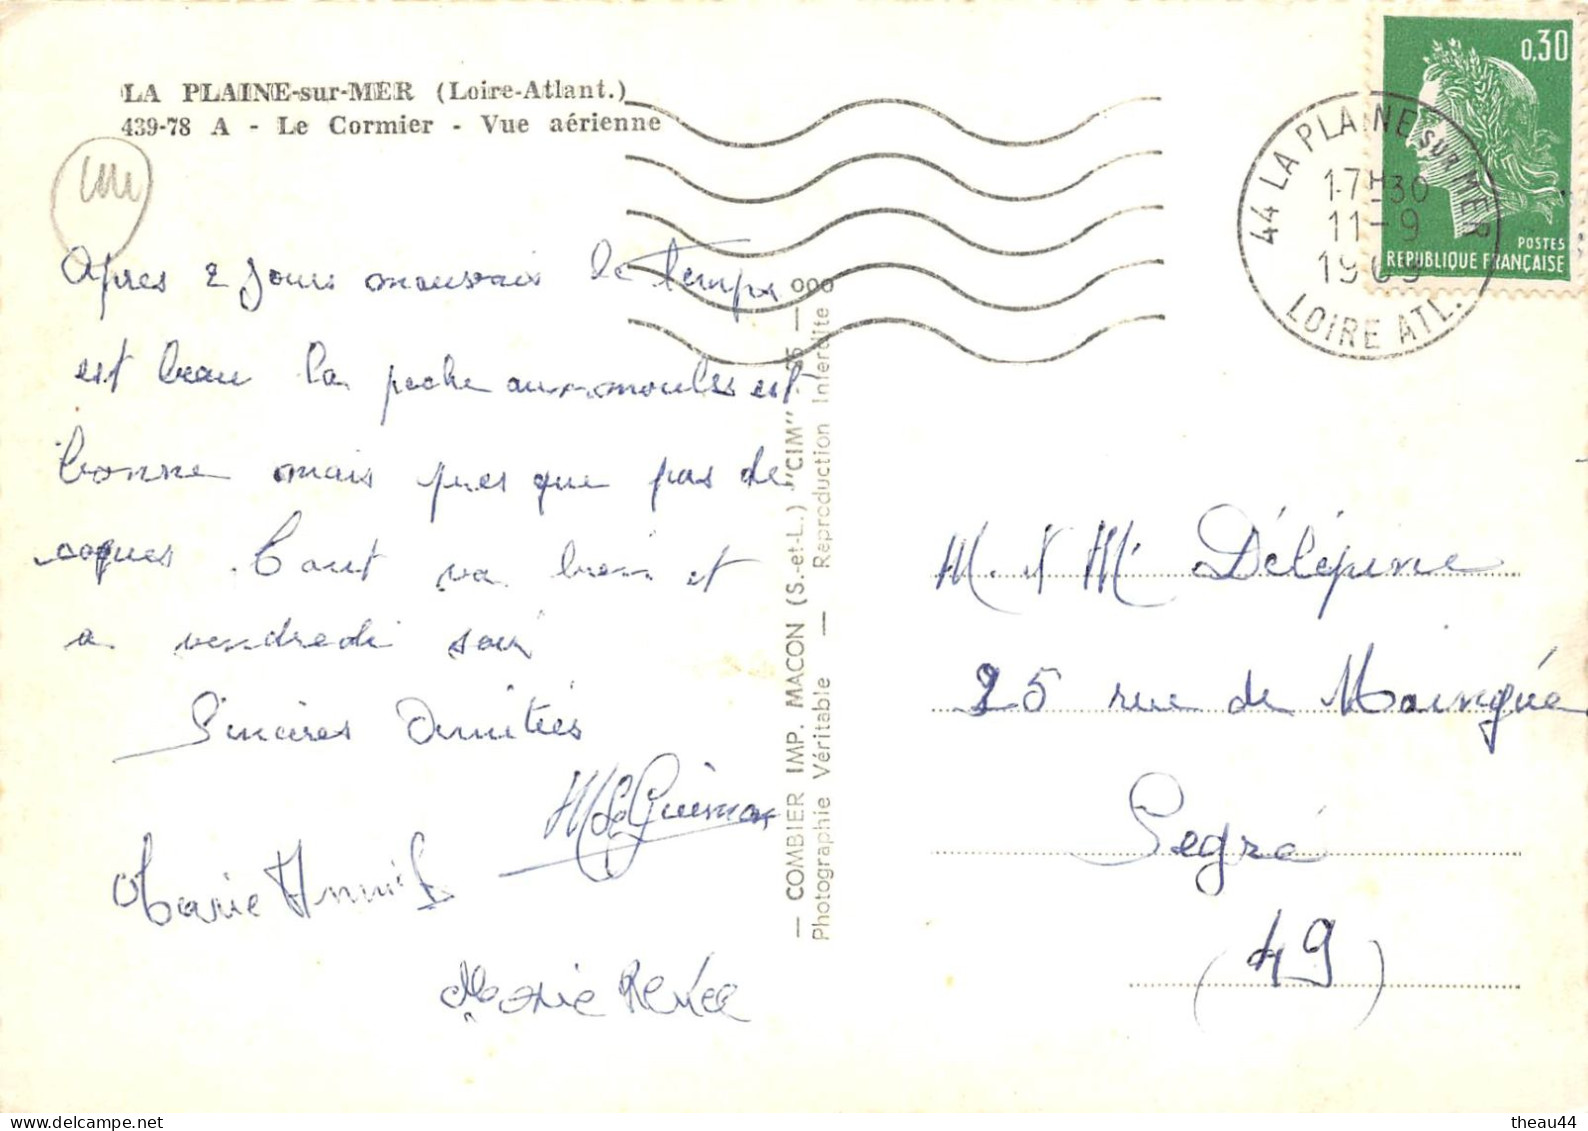 LA PLAINE-sur-MER (Loire-Atlant.)
439-78 A - Le Cormier - Vue aérienne
Après 2 jours mauvais le temps
est beau la peche aux moules est
bonne mais pres que pas de
coques. Tout va bien et
a vendredi soir
Sincères Amitiés
Marie
Marie Renée
— COMBIER IMP. MACON (S.-et-L.) "CIM"
Photographie Véritable — Reproduction Interdite
0,30
POSTES
REPUBLIQUE FRANÇAISE
44 LA PLAINE SUR MER
17H30
11-9
1969
LOIRE ATL.
M. & Me Délépine
25 rue de Maingué
Segré
(49)
theau44